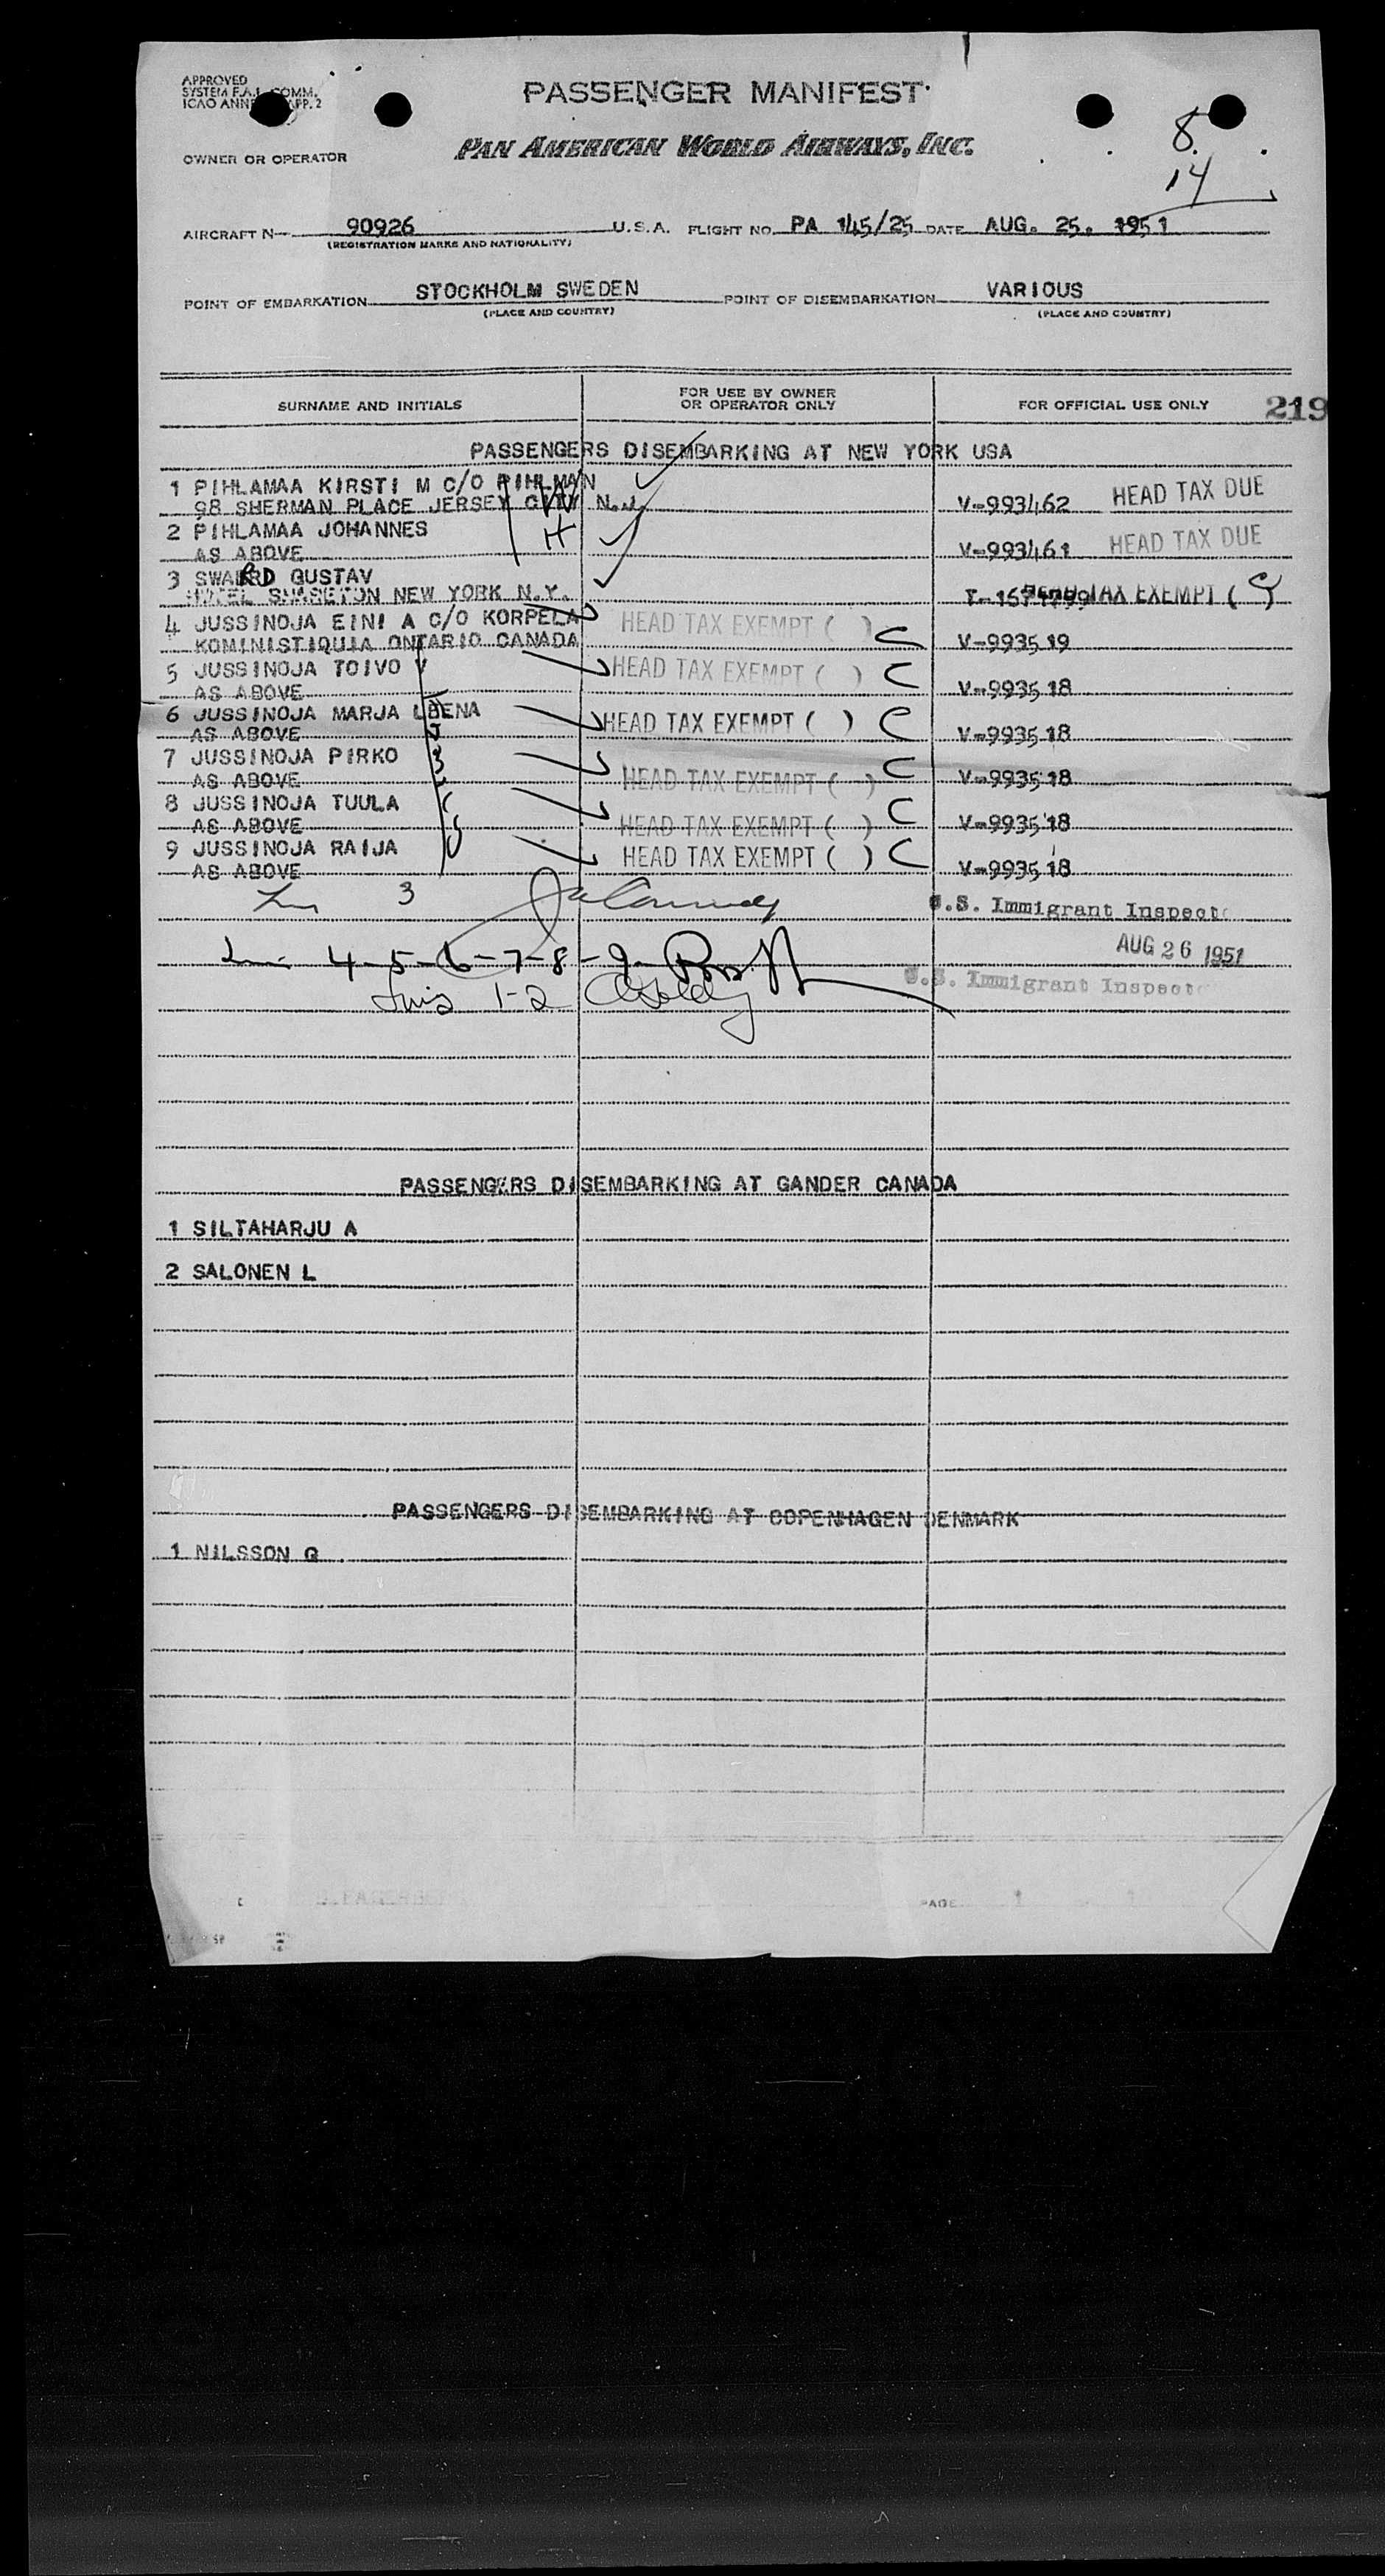 APPROVED
SYSTEM F.A.L. COMM.
ICAO APP. 2
PASSENGER MANIFEST
PAN AMERICAN WORLD AIRWAYS, INC.
OWNER OR OPERATOR
8
14
AIRCRAFT N 90926 U.S.A. FLIGHT NO. PA 145/25 DATE AUG. 25. 1951
(REGISTRATION MARKS AND NATIONALITY)
POINT OF EMBARKATION STOCKHOLM SWEDEN POINT OF DISEMBARKATION VARIOUS
(PLACE AND COUNTRY) (PLACE AND COUNTRY)
SURNAME AND INITIALS FOR USE BY OWNER OR OPERATOR ONLY FOR OFFICIAL USE ONLY 219
PASSENGERS DISEMBARKING AT NEW YORK USA
1 PIHLAMAA KIRSTI M C/O PIHLMAN
98 SHERMAN PLACE JERSEY CITY N.J. V-993462 HEAD TAX DUE
W
2 PIHLAMAA JOHANNES
AS ABOVE H V-993461 HEAD TAX DUE
3 SWARRD GUSTAV
NEW YORK N.Y. HEAD TAX EXEMPT ( C )
4 JUSSINOJA EINI A C/O KORPELA HEAD TAX EXEMPT ( ) C
KOMINISTIQUIA ONTARIO CANADA V-993519
5 JUSSINOJA TOIVO V HEAD TAX EXEMPT ( ) C
AS ABOVE V-993518
6 JUSSINOJA MARJA LEENA HEAD TAX EXEMPT ( ) C
AS ABOVE V-993518
7 JUSSINOJA PIRKO
AS ABOVE HEAD TAX EXEMPT ( ) C V-993518
8 JUSSINOJA TUULA
AS ABOVE HEAD TAX EXEMPT ( ) C V-993518
9 JUSSINOJA RAIJA HEAD TAX EXEMPT ( ) C
AS ABOVE V-993518
3 U.S. Immigrant Inspector
4-5-6-7-8-9 AUG 26 1951
1-2 U.S. Immigrant Inspector
PASSENGERS DISEMBARKING AT GANDER CANADA
1 SILTAHARJU A
2 SALONEN L
PASSENGERS DISEMBARKING AT COPENHAGEN DENMARK
1 NILSSON G
PAGE 1